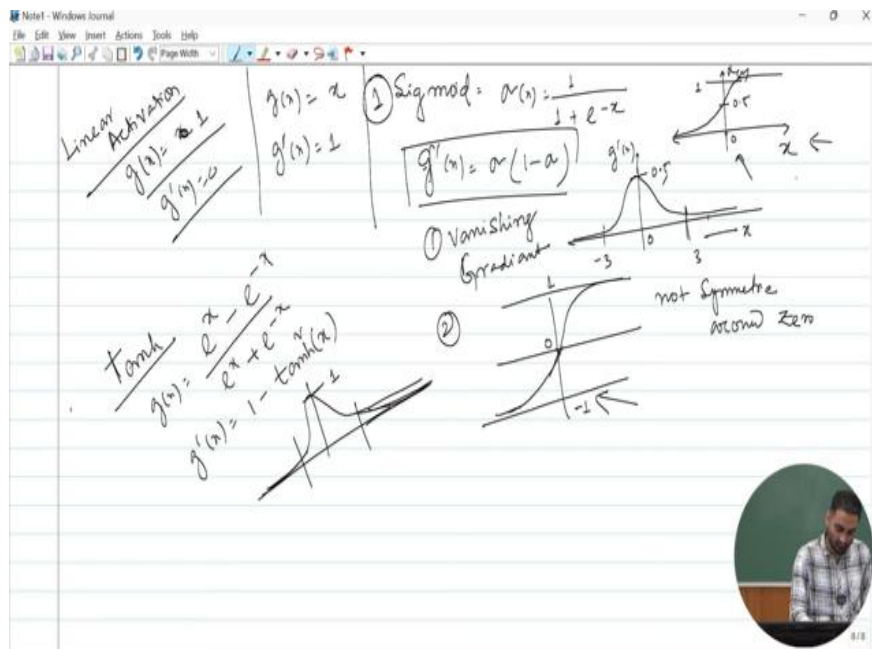 Note1 - Windows Journal
File Edit View Insert Actions Tools Help
Page Width
Linear
Activation
g(x) = 1
g'(x) = 0
g(x) = x
g'(x) = 1
① Sigmod = σ(x) = 1 / 1 + e^-x
g'(x) = σ(1-σ)
1
0.5
0
x
① Vanishing
Gradiant
g'(x)
0.5
-3
0
3
x
② 
1
0
-1
not Symmetre
around Zero
Tanh
g(x) = e^x - e^-x / e^x + e^-x
g'(x) = 1 - tanh²(x)
1
8/8